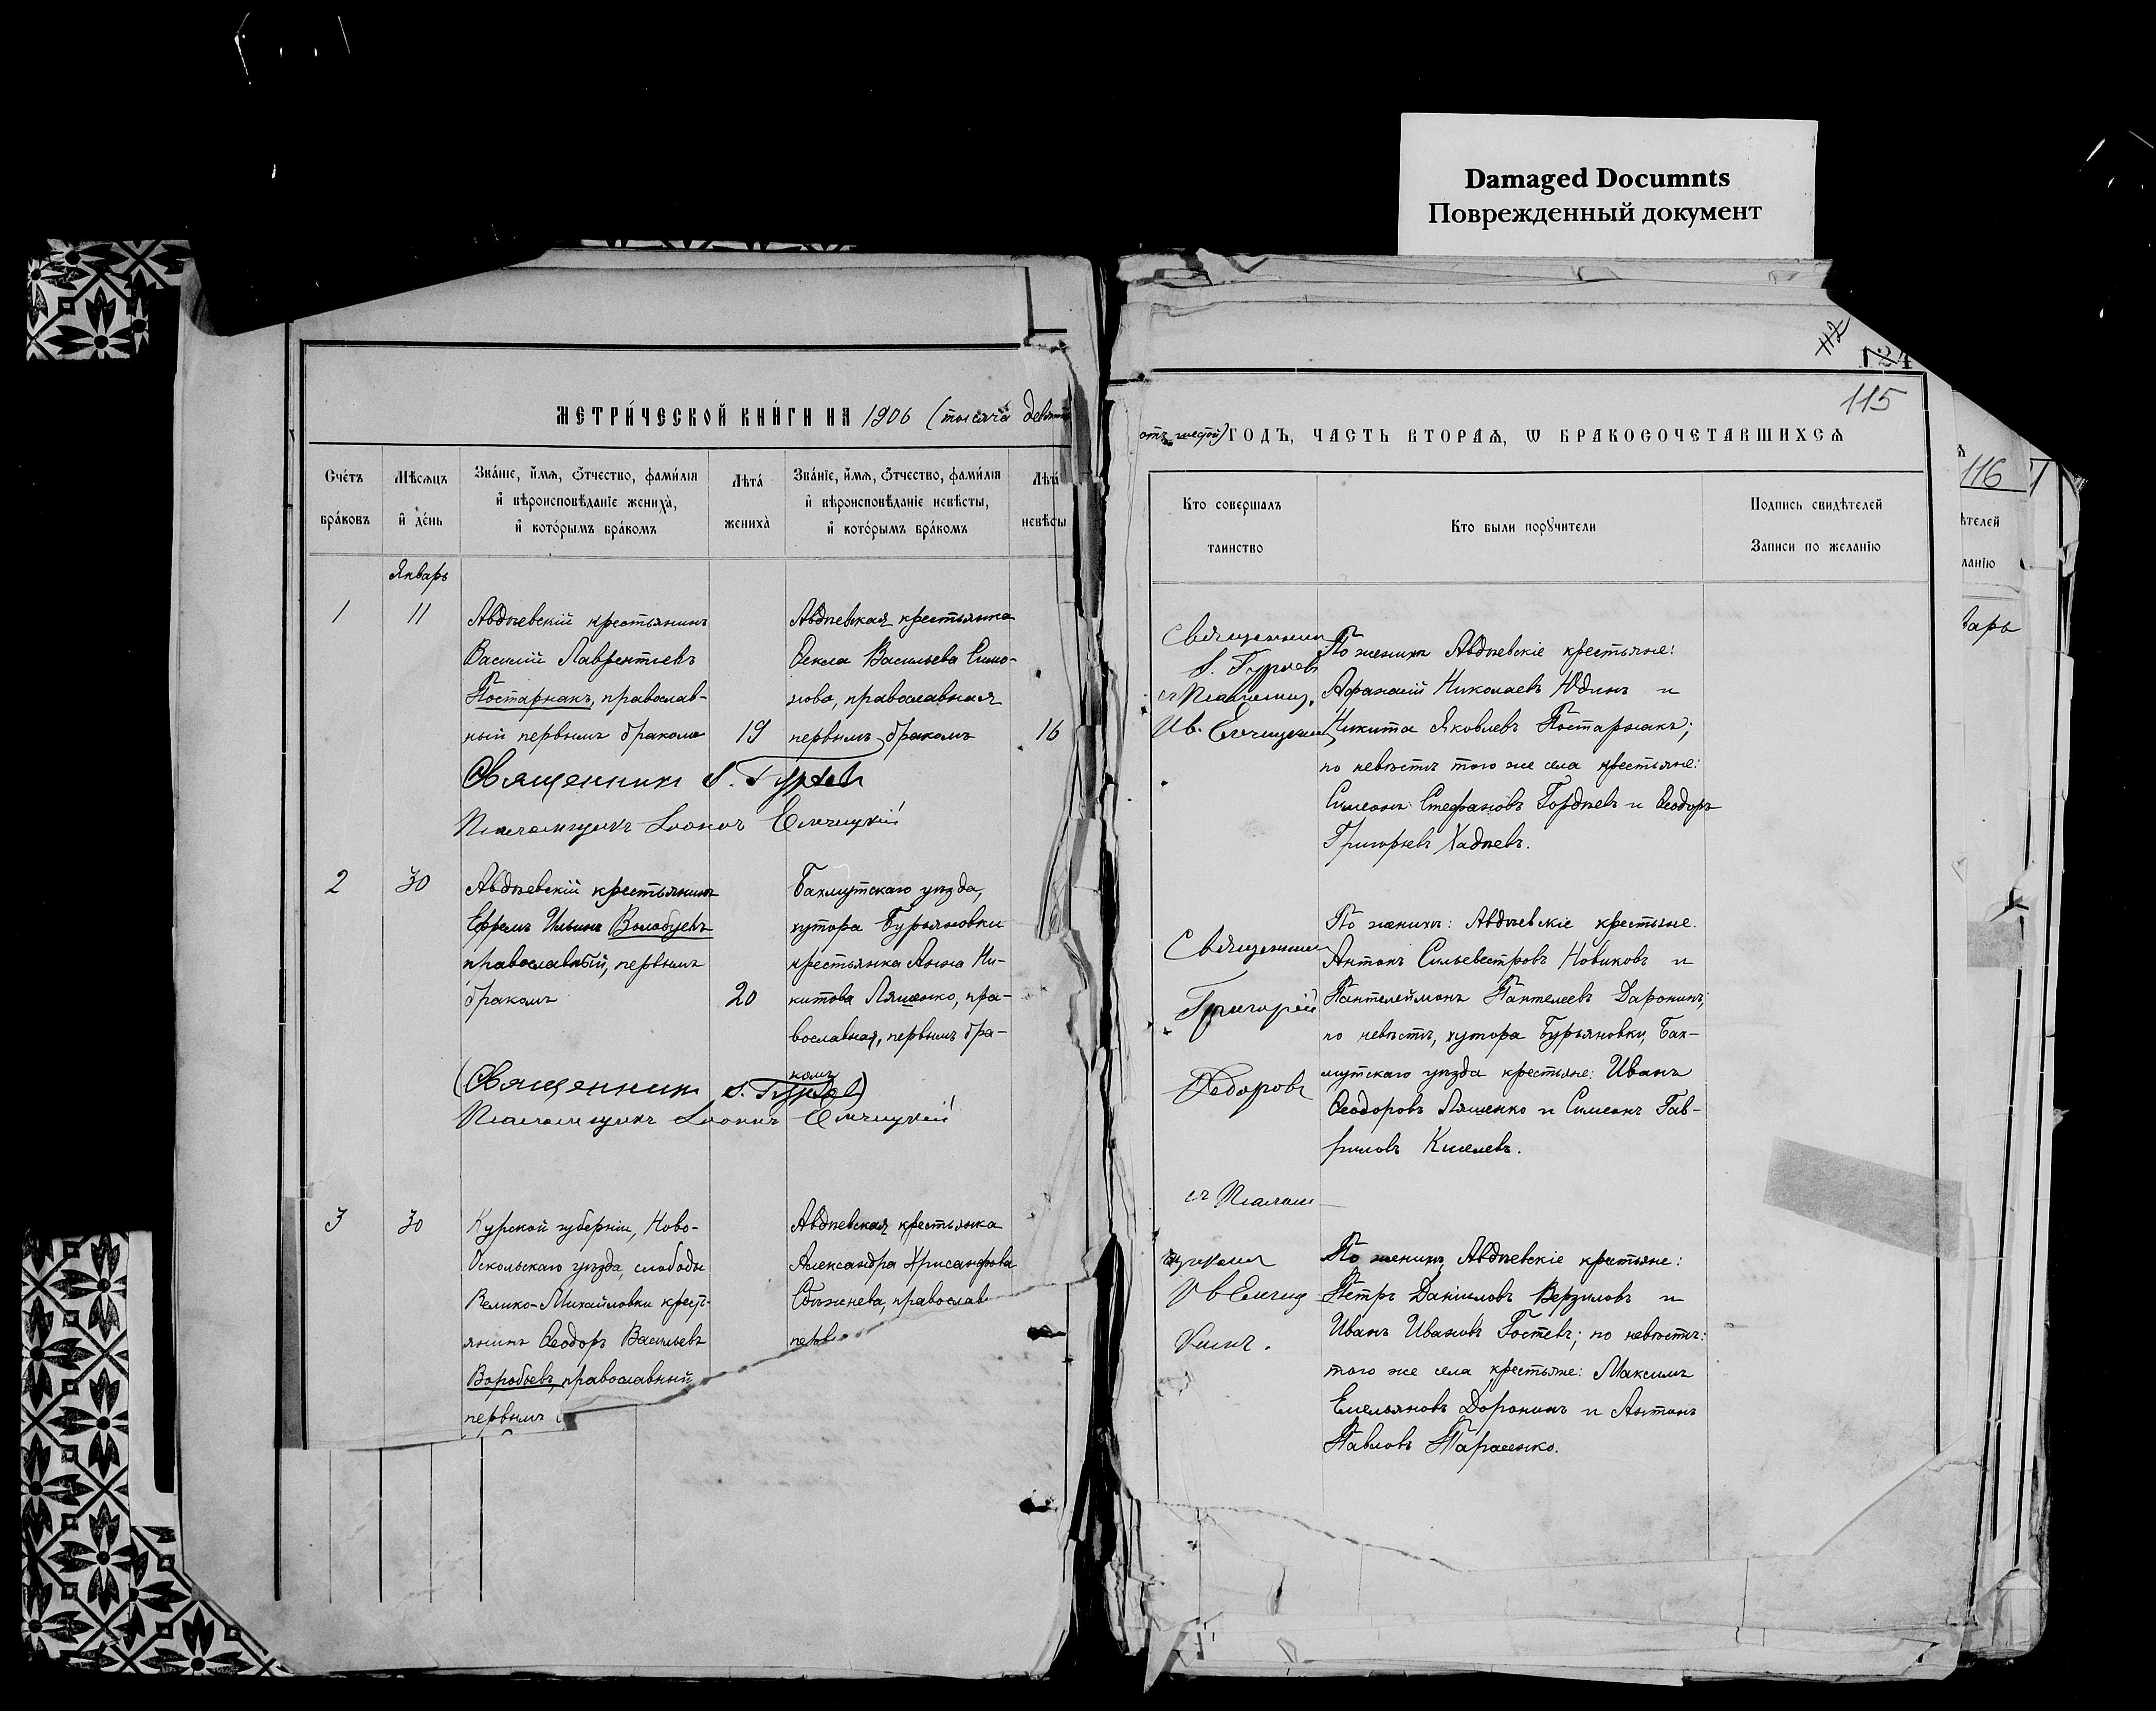 Damaged Documnts
Поврежденный документ
112
124
115
116
МЕТРИ́ЧЕСКОЙ КНИ́ГИ НА 1906 (тысяча девять
отъ шестой) ГОДЪ, ЧАСТЬ ВТОРАЯ, Ѡ БРАКОСОЧЕТАВШИХСЯ
Счетъ браковъ
Мѣсяцъ и день
Званіе, имя, отчество, фамилія и вѣроисповѣданіе жениха, и которымъ бракомъ
Лѣта жениха
Званіе, имя, отчество, фамилія и вѣроисповѣданіе невѣсты, и которымъ бракомъ
Лѣта невѣсты
Кто совершалъ таинство
Кто были поручители
Подпись свидѣтелей
Записи по желанію
Январь
1 11
Авдѣевскій крестьянинъ
Василій Лаврентіевъ
Постарнакъ, православ-
ный первымъ бракомъ
19
Авдѣевская крестьянка
Ѳекла Васильева Симо-
нова, православная
первымъ бракомъ
16
Священник
По жениху Авдѣевскіе крестьяне:
Афанасій Николаевъ Юдинъ и
Никита Яковлевъ Постарнакъ;
по невѣстѣ того же села крестьяне:
Симеонъ Стефановъ Гордѣевъ и Ѳеодоръ
Григорьевъ Хадѣевъ.
2 30
Авдѣевскій крестьянинъ
Ефремъ Ильинъ Волобуевъ
православный, первымъ
бракомъ
20
Бахмутскаго уѣзда,
хутора Бурьяновки
крестьянка Анна Ни-
китова Ляшенко, пра-
вославная, первымъ бра-
комъ
Священник
Священник
Григорій
Федоровъ
По жениху: Авдѣевскіе крестьяне.
Антонъ Сильвестровъ Новиковъ и
Пантелеймонъ Пантелеевъ Даронинъ;
по невѣстѣ, хутора Бурьяновки, Бах-
мутскаго уѣзда крестьяне: Иванъ
Ѳеодоровъ Ляшенко и Симеонъ Гав-
риловъ Киселевъ.
3 30
Курской губерніи, Ново-
Оскольскаго уѣзда, слободы
Велико-Михайловки крест-
янинъ Ѳеодоръ Васильевъ
Воробьевъ, православный
первымъ
Авдѣевская крестьянка
Александра Хрисанфова
православ
перв
По жениху Авдѣевскіе крестьяне:
Петръ Даніиловъ Верзиловъ и
Иванъ Ивановъ Гостевъ; по невѣстѣ:
того же села крестьяне: Максимъ
Емельяновъ Доронинъ и Антонъ
Павловъ Парасенко.
ѣтелей
ланію
варь